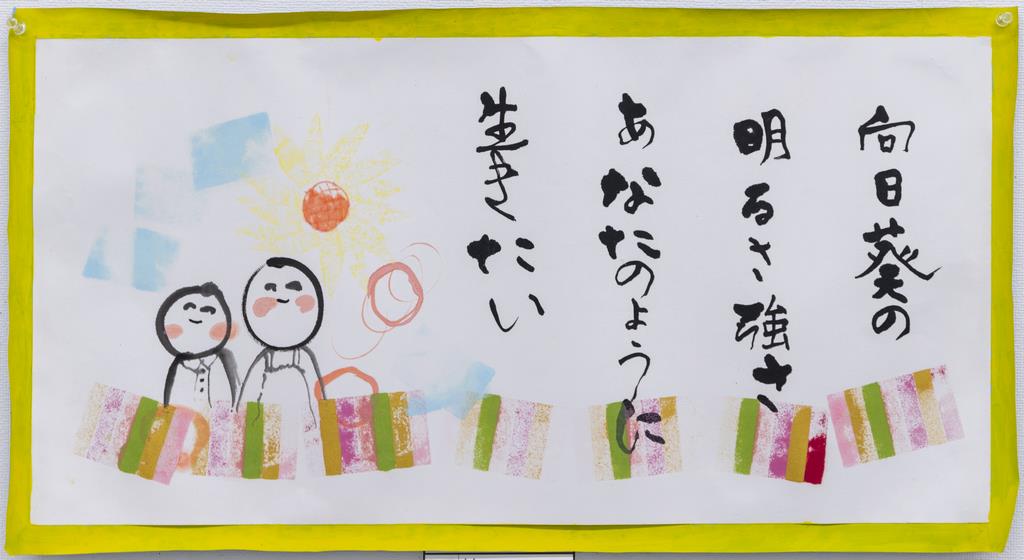 向日葵の
明るさ強さ
あなたのように
生きたい